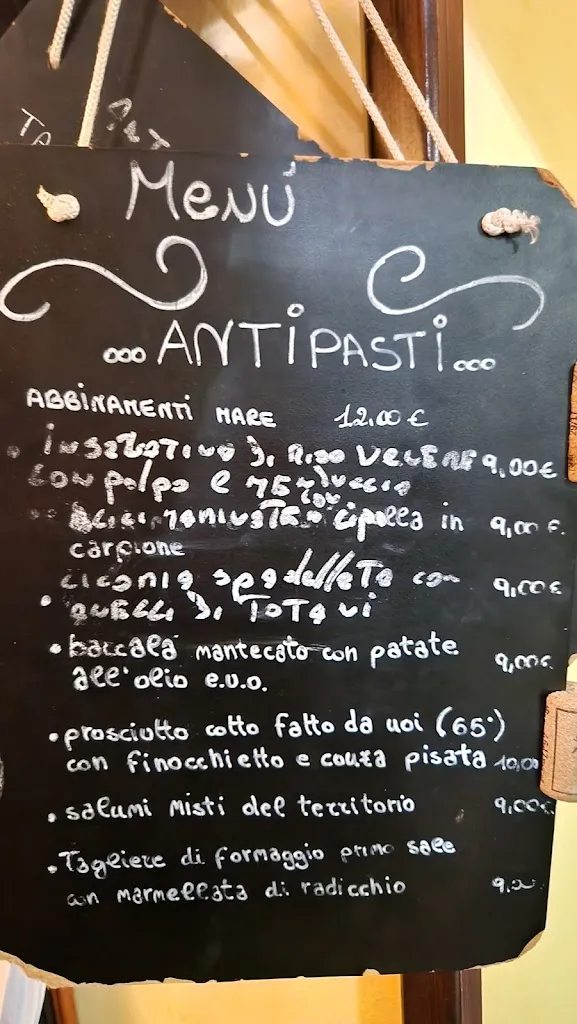 Menú
...ANTIPASTI...
ABBINAMENTI MARE 12,00 €
di riso VENERE 9,00€
con polpo e
cipolla in 9,00 €.
carpione
spadellata con 9,00€
di TOTANI
• baccalà mantecato con patate 9,00€.
all'olio e.v.o.
• prosciutto cotto fatto da noi (65°)
con finocchietto e pisata 10,00
• salumi misti del territorio 9,00€.
• Tagliere di formaggio primo sale
con marmellata di radicchio 9,00